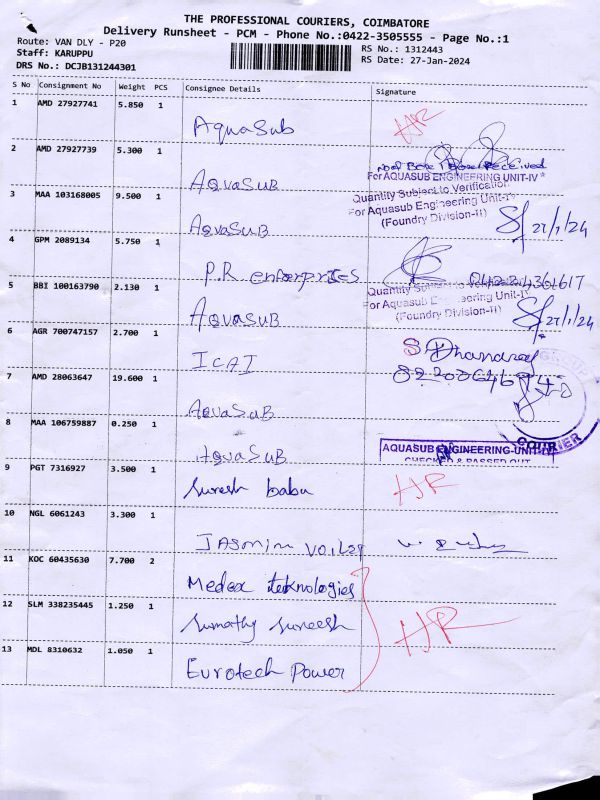 THE PROFESSIONAL COURIERS, COIMBATORE
Delivery Runsheet - PCM - Phone No.:0422-3505555 - Page No.:1
Route: VAN DLY - P20
RS No.: 1312443
Staff: KARUPPU
RS Date: 27-Jan-2024
DRS No.: DCJB131244301
S No Consignment No Weight PCS Consignee Details Signature
1 AMD 27927741 5.850 1
AquaSub HR
2 AMD 27927739 5.300 1
AQuaSuB
Received
For AQUASUB ENGINEERING UNIT-IV
3 MAA 103168005 9.500 1
Quantity Subject to Verification
For Aquasub Engineering Unit-IV
(Foundry Division-II)
AQuaSuB 27/1/24
4 GPM 2089134 5.750 1
P.R enterprises 04224361617
5 BBI 100163790 2.130 1
Quantity Subject to Verification
For Aquasub Engineering Unit-IV
(Foundry Division-II)
AQuaSuB 27/1/24
6 AGR 700747157 2.700 1
ICAI
7 AMD 28063647 19.600 1
AQuaSuB
COURIER
8 MAA 106759887 0.250 1
AQuaSuB
AQUASUB ENGINEERING-UNIT-IV
CHECKED & PASSED OUT
9 PGT 7316927 3.500 1
Suresh babu HR
10 NGL 6061243 3.300 1
JASmim
11 KOC 60435630 7.700 2
Medex teknologies
12 SLM 338235445 1.250 1
Sumathy Sureesh HR
13 MDL 8310632 1.050 1
Eurotech Power